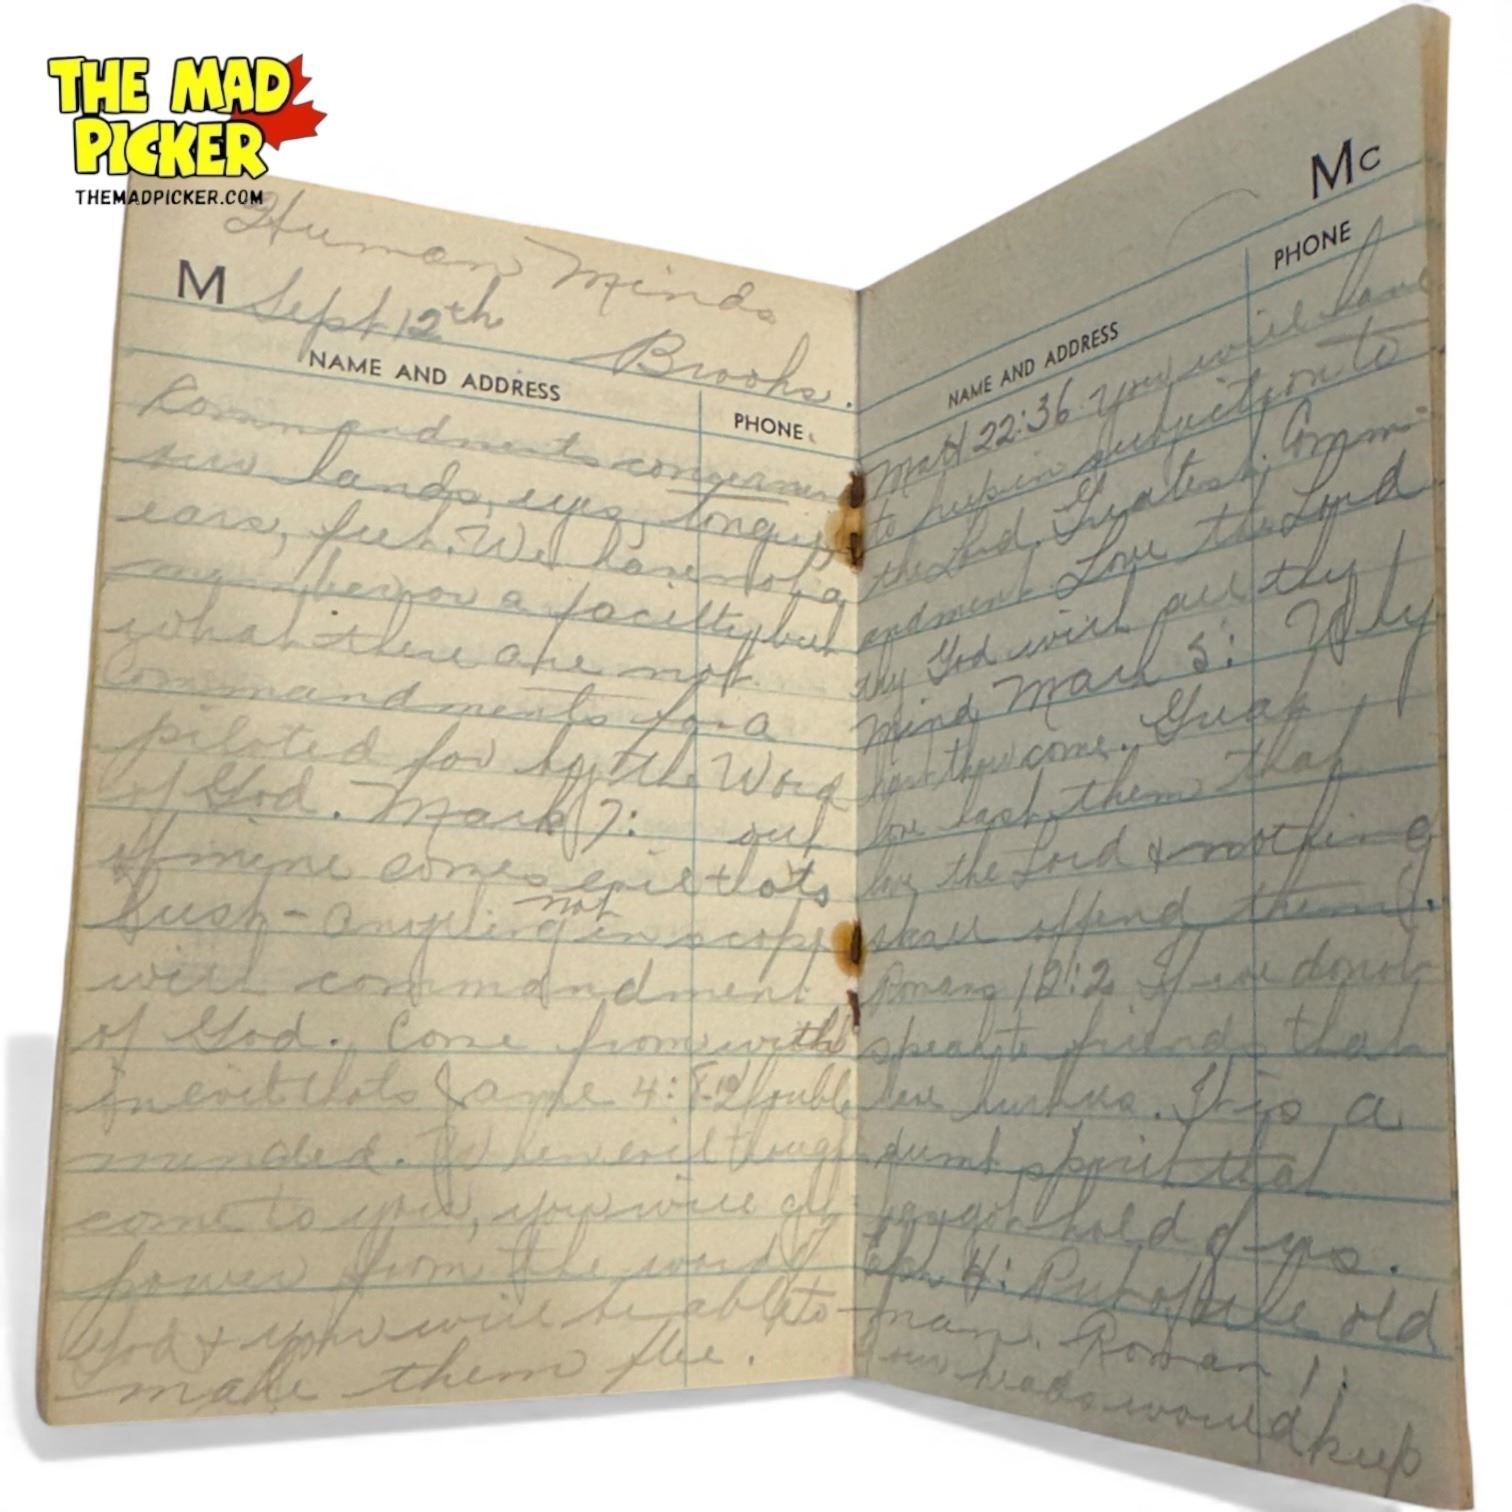 THE MAD
PICKER
THEMADPICKER.COM
Human Minds
M Sept 12th Brooks.
NAME AND ADDRESS PHONE
Commandments concernen
hands, eyes, tongue
ears, feet. We have not a
member or a facilty but
what there are not
Commandments for a
piloted for by the Word
of God. Mark 7: out
of mine comes evil thots
Lust - anything not in scope
with commandment
of God. Come from with
in evil thots Jame 4: 8-12 double
minded. When evil though
come to you, you will get
power from the word of
God & you will be able to
make them flee.
Mc
NAME AND ADDRESS PHONE
Matt 22:36 you will have
to keep in subjection to
the Lord. Greatest Comm
andment Love the Lord
thy God with all thy
mind Mark 5:
thou come. Great
love them that
love the Lord & nothing
shall offend them.
Romans 12:2 If we do not
speak to friends that
It is a
dumb spirit that
has got hold of us.
Eph 4: Put off the old
man. Roman 1:
would keep